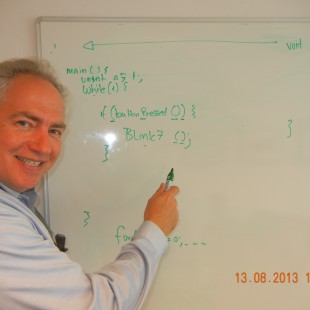 void
main () {
int a = 1;
while(1) {
if (buttonPressed ()) {
BLink7 ();
}
}
}
for = 0; ---
13.08.2013 1